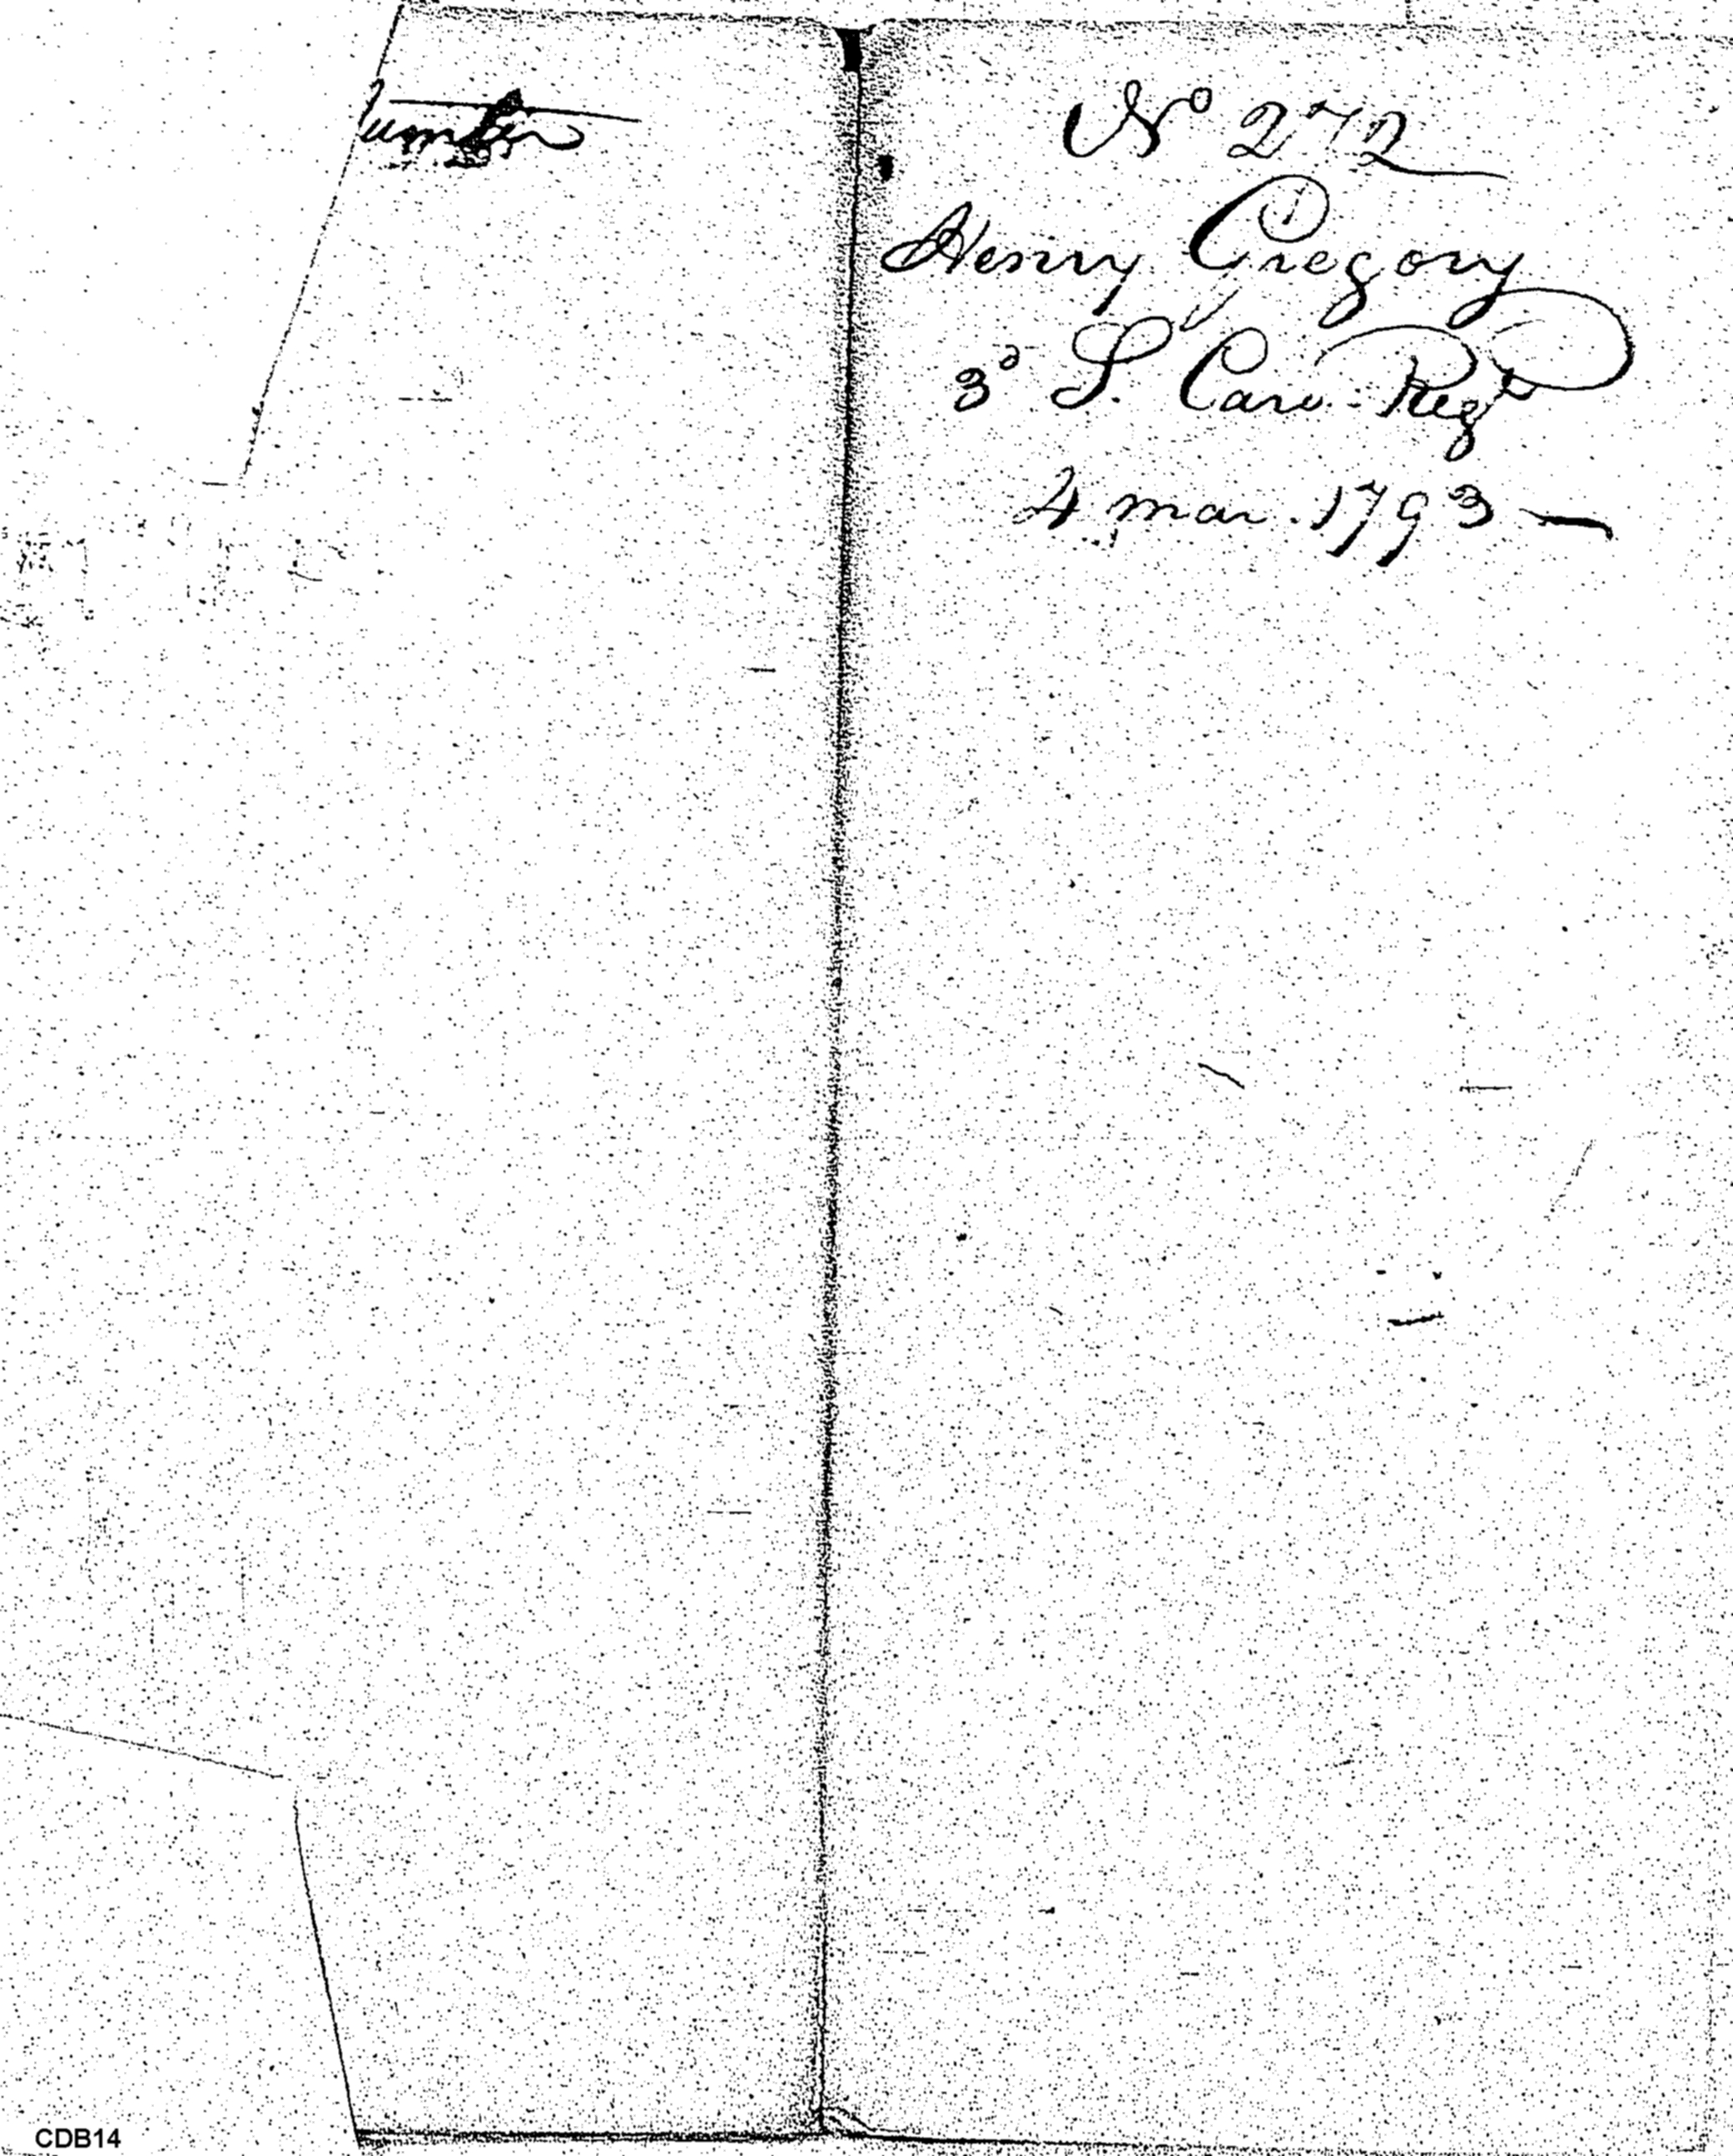 No 272
Henry Gregory
3d S. Caro. Regt
4 mar. 1793 —
CDB14